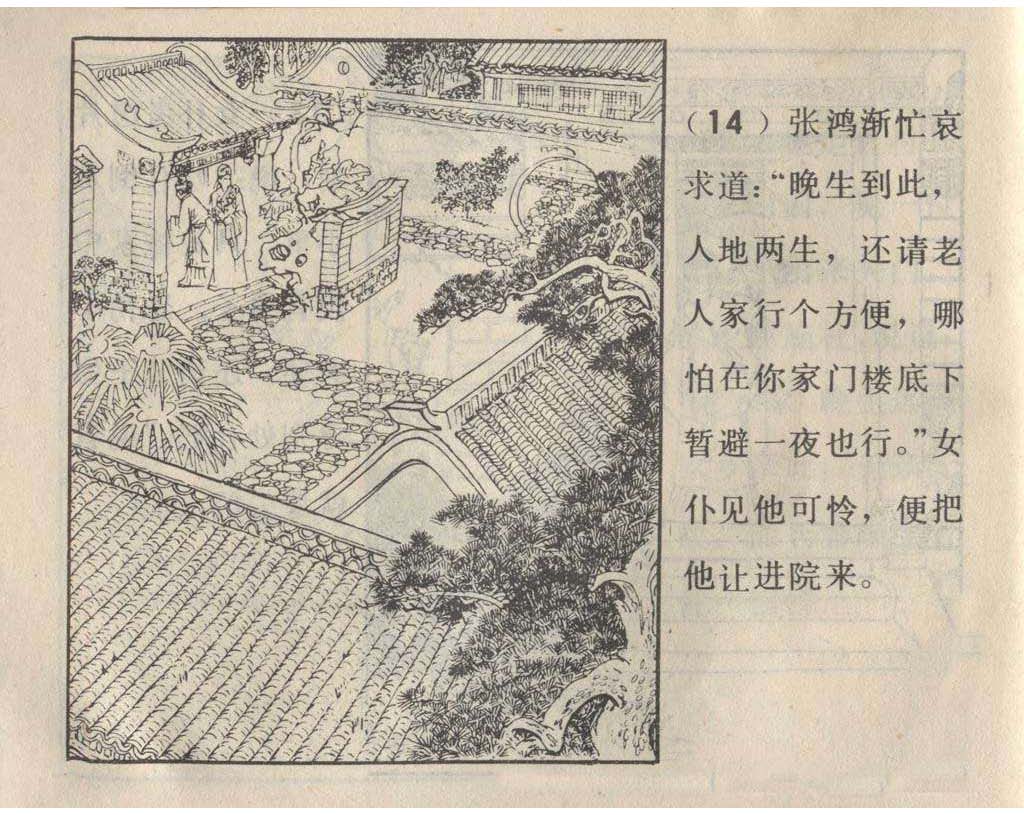 （14）张鸿渐忙哀
求道：“晚生到此，
人地两生，还请老
人家行个方便，哪
怕在你家门楼底下
暂避一夜也行。”女
仆见他可怜，便把
他让进院来。